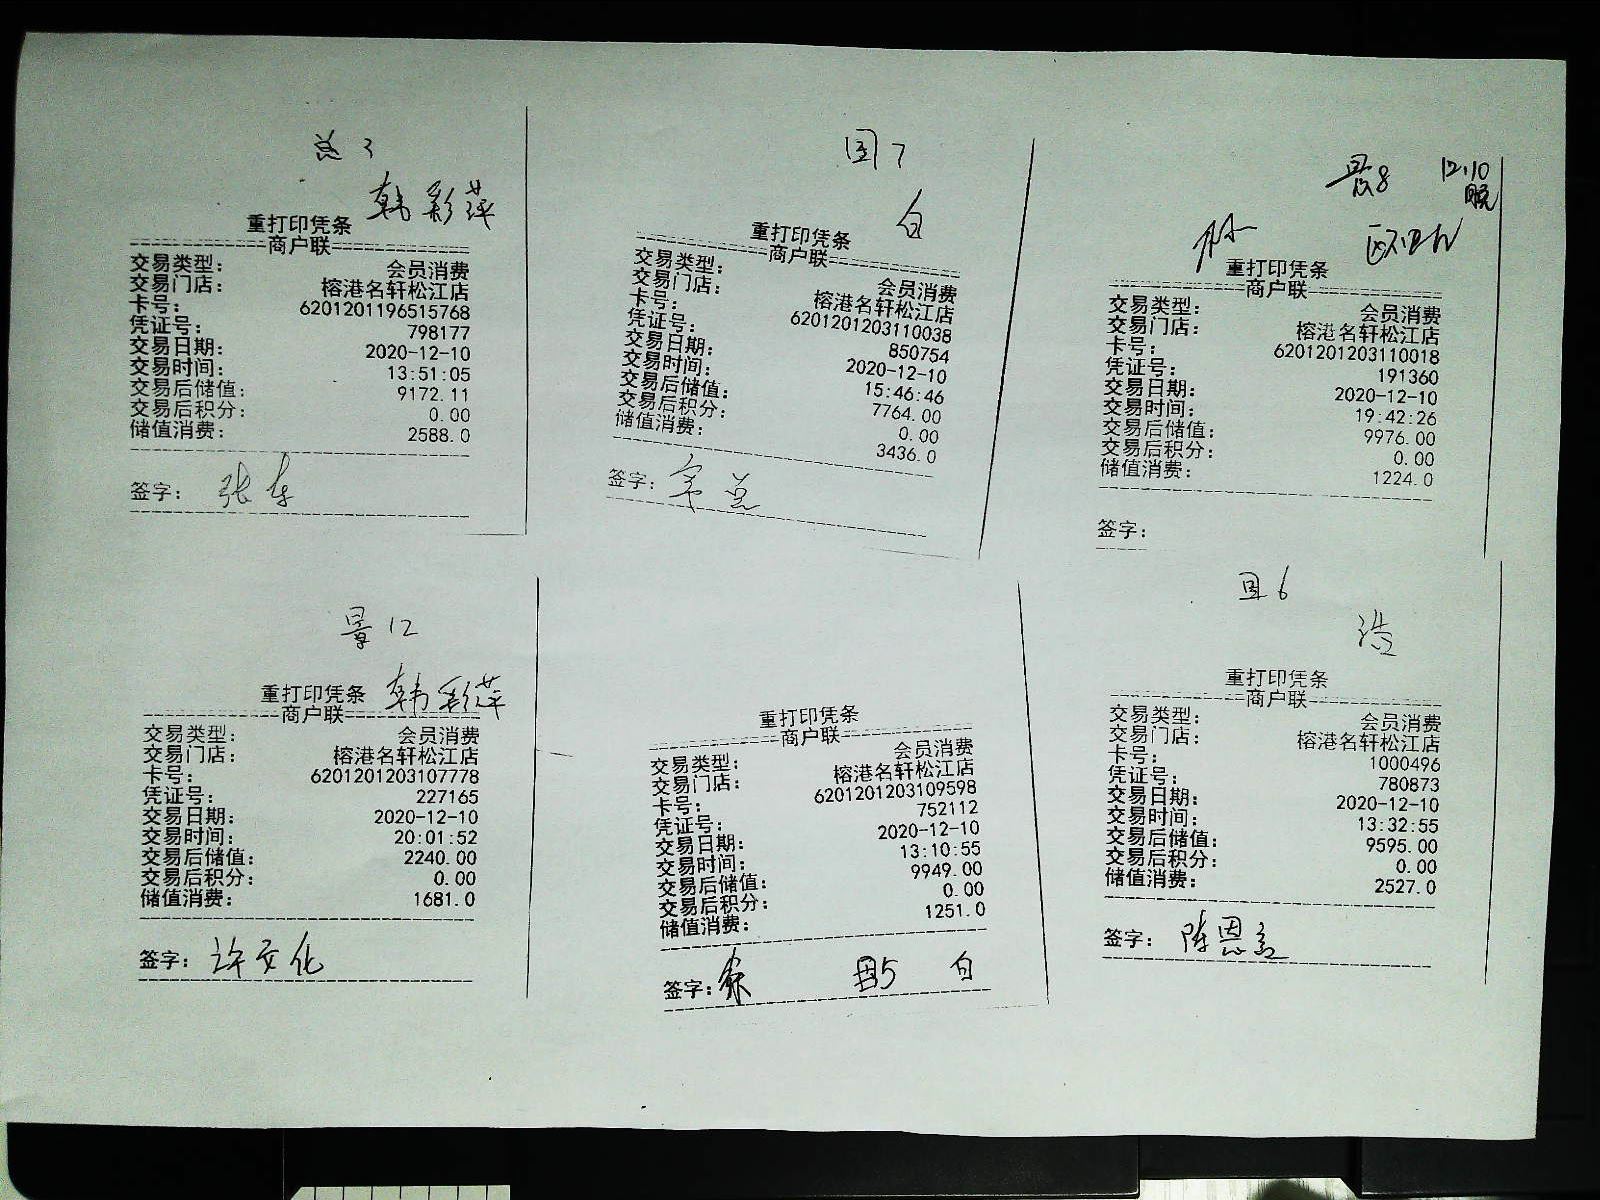 韩彩萍
重打印凭条
商户联
交易类型： 会员消费
交易门店： 榕港名轩松江店
卡号： 6201201196515768
凭证号： 798177
交易日期： 2020-12-10
交易时间： 13:51:05
交易后储值： 9172.11
交易后积分： 0.00
储值消费： 2588.0
签字： 张春
国7
白
重打印凭条
商户联
交易类型： 会员消费
交易门店： 榕港名轩松江店
卡号： 6201201203110038
凭证号： 850754
交易日期： 2020-12-10
交易时间： 15:46:46
交易后储值： 7764.00
交易后积分： 0.00
储值消费： 3436.0
签字：
12.10
晚
林
重打印凭条
商户联
交易类型： 会员消费
交易门店： 榕港名轩松江店
卡号： 6201201203110018
凭证号： 191360
交易日期： 2020-12-10
交易时间： 19:42:26
交易后储值： 9976.00
交易后积分： 0.00
储值消费： 1224.0
签字：
景12
韩彩萍
重打印凭条
商户联
交易类型： 会员消费
交易门店： 榕港名轩松江店
卡号： 6201201203107778
凭证号： 227165
交易日期： 2020-12-10
交易时间： 20:01:52
交易后储值： 2240.00
交易后积分： 0.00
储值消费： 1681.0
签字： 许文化
重打印凭条
商户联
交易类型： 会员消费
交易门店： 榕港名轩松江店
卡号： 6201201203109598
凭证号： 752112
交易日期： 2020-12-10
交易时间： 13:10:55
交易后储值： 9949.00
交易后积分： 0.00
储值消费： 1251.0
签字： 国5 白
国6
浩
重打印凭条
商户联
交易类型： 会员消费
交易门店： 榕港名轩松江店
卡号： 1000496
凭证号： 780873
交易日期： 2020-12-10
交易时间： 13:32:55
交易后储值： 9595.00
交易后积分： 0.00
储值消费： 2527.0
签字：